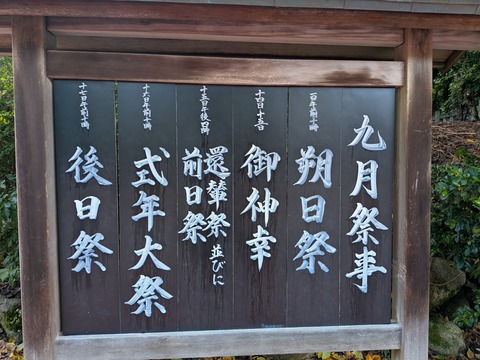 九月祭事
一日午前十時
朔日祭
御神幸
還輦祭 並びに
前日祭
十六日午前十時
式年大祭
十七日午前十時
後日祭